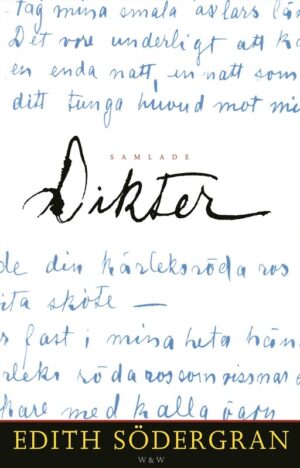 tag mina smala axlars län
Det vore underligt att ha
en enda natt, en natt som
ditt tunga huvud mot mi
SAMLADE
Dikter
de din kärleksröda ros
ita sköte —
r fast i mina heta hän
rleks röda ros som vissnar s
kare med kalla ögon
EDITH SÖDERGRAN
W&W